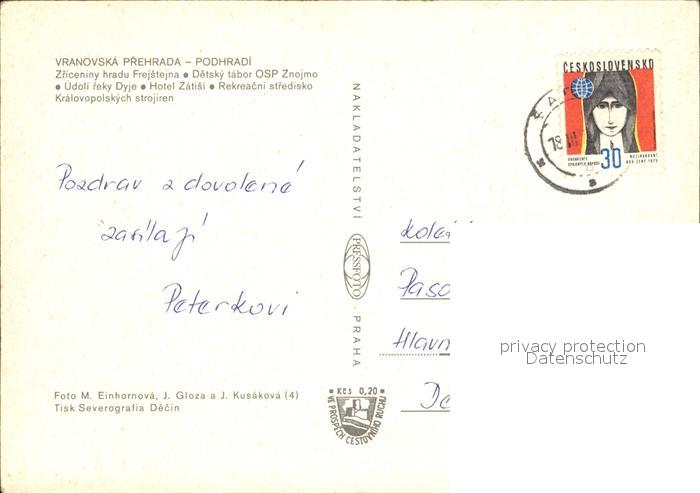 VRANOVSKÁ PŘEHRADA – PODHRADÍ
Zříceniny hradu Frejštejna ● Dětský tábor OSP Znojmo
● Údolí řeky Dyje ● Hotel Zátiší ● Rekreační středisko
Královopolských strojíren
ČESKOSLOVENSKO
30
MEZINÁRODNÍ
ROK ŽENY 1975
Pozdrav z dovolené
zasílají
Peterkovi
NAKLADATELSTVÍ
PRESSFOTO
PRAHA
Hlavn
privacy protection
Datenschutz
Kčs 0,20
VE PROSPĚCH CESTOVNÍHO RUCHU
Foto M. Einhornová, J. Gloza a J. Kusáková (4)
Tisk Severografia Děčín